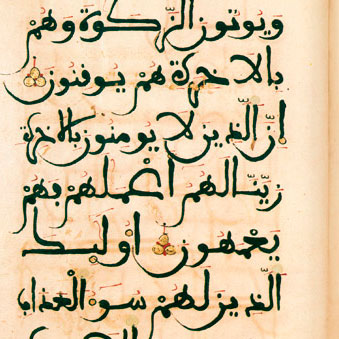 ويوتون الزكوة وهم
بالاخرة هم يوقنون
ان الذين لا يومنون بالاخرة
زينا لهم اعملهم فهم
يعمهون اوليك
الذين لهم سو العذاب